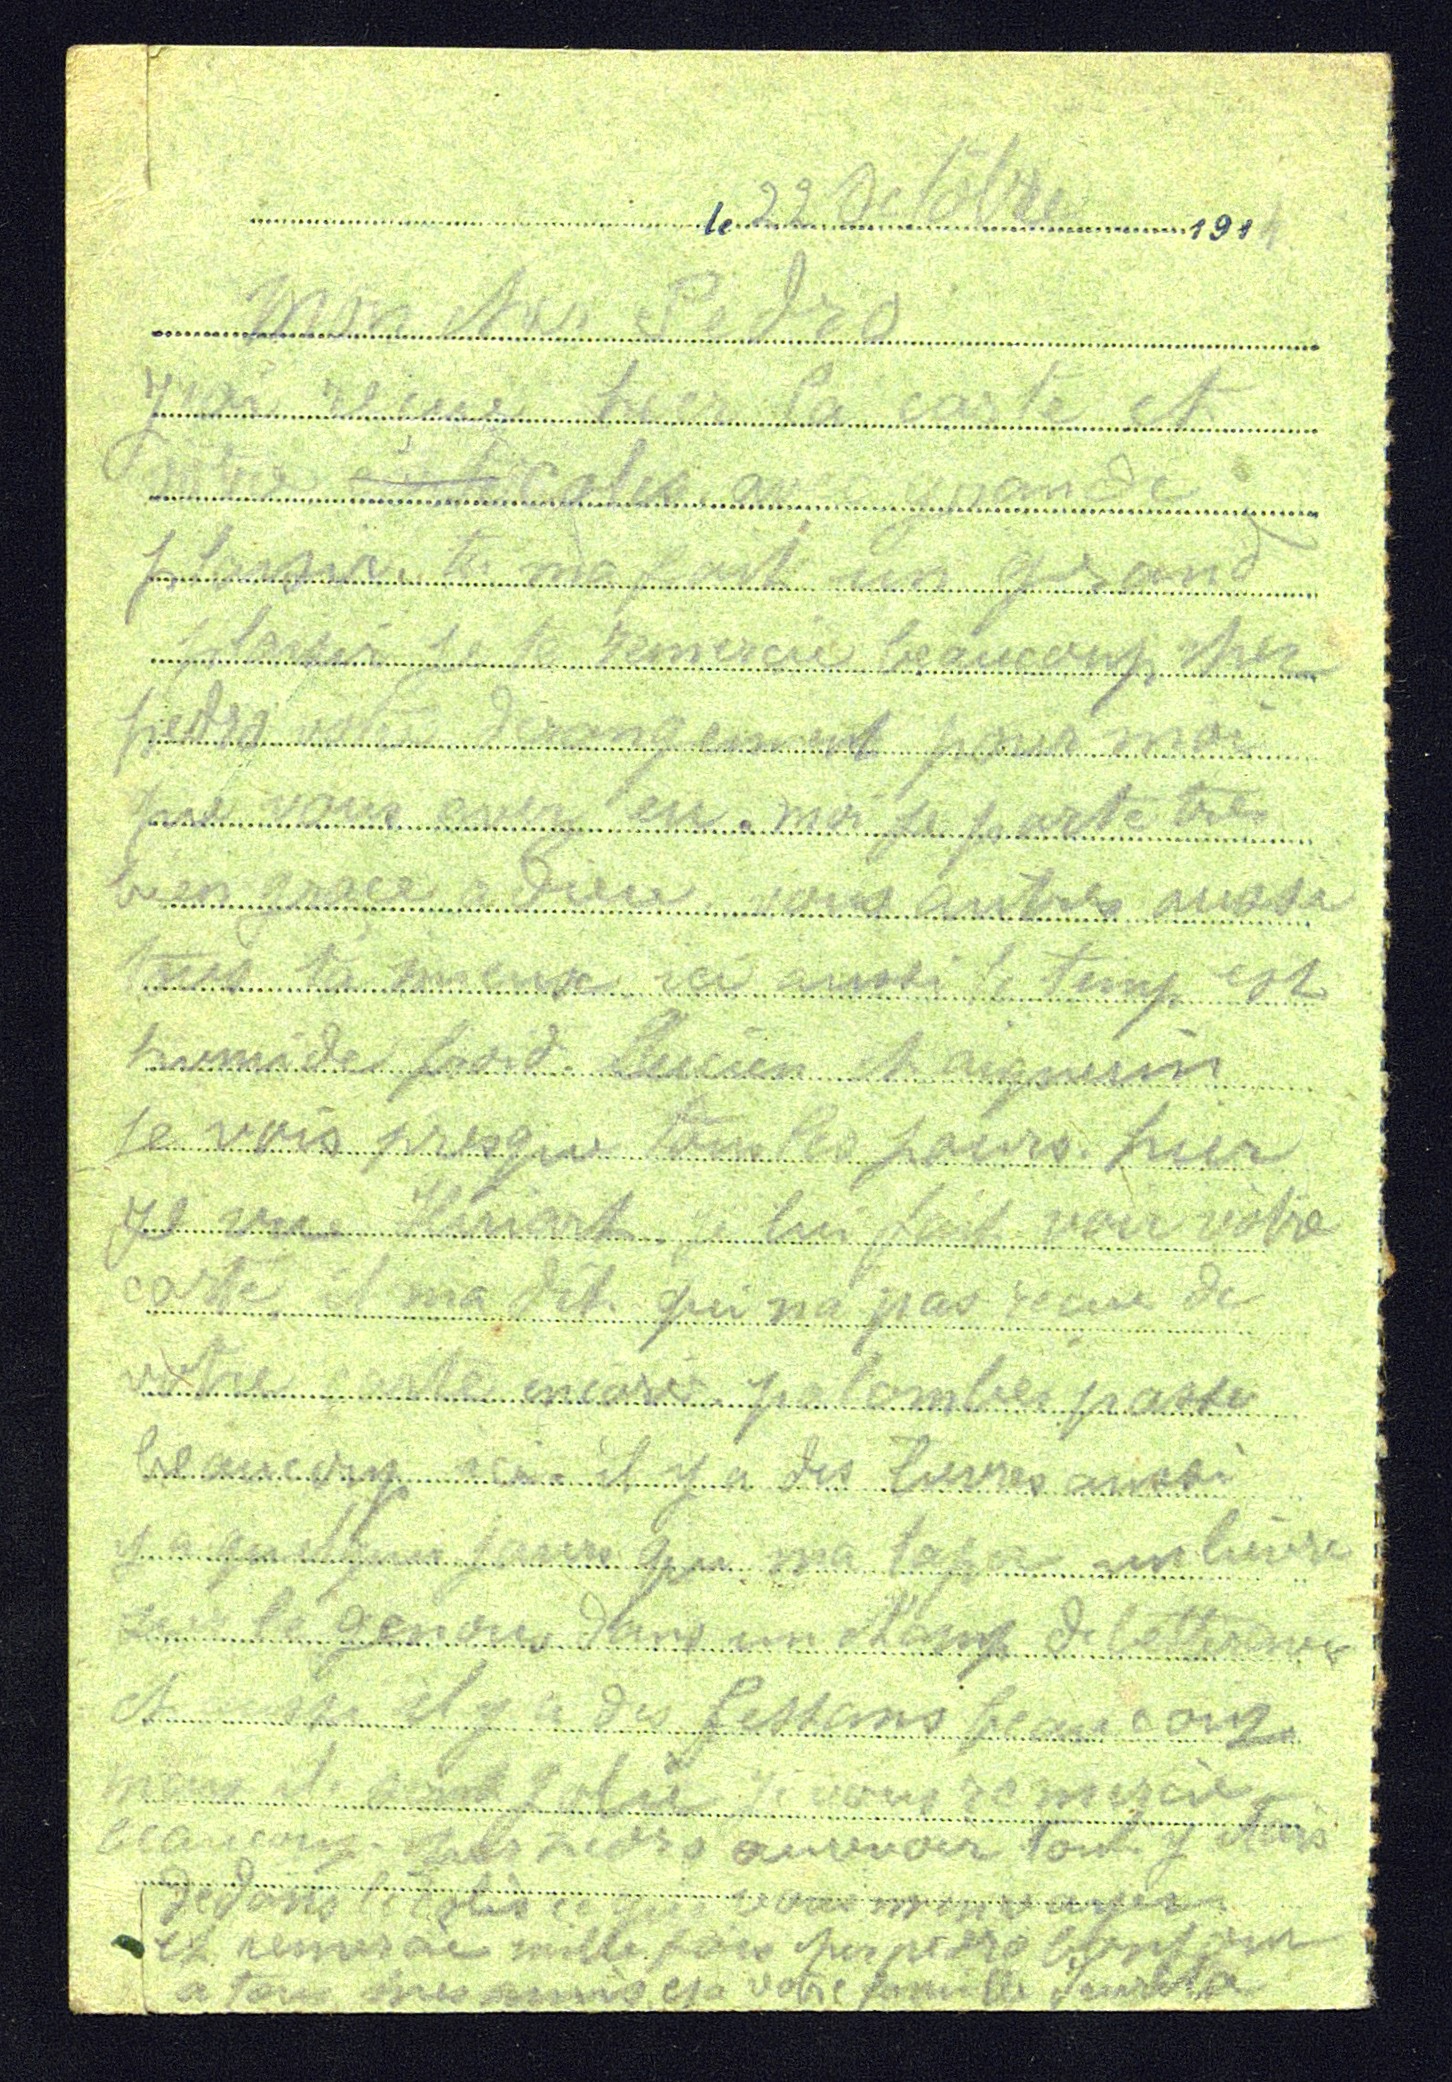 le 22 Octobre 1914
Mon cher Pedro
J'ai reçue hier la carte et
votre colis avec grande
plaisir. tu m'a fait un grand
plaisir je te remercie beaucoup cher
pedro votre derangement pour moi
que vous avez eu. moi je porte très
bien grace a Dieu. vous autres aussi
tous ta mieux ici aussi le temp est
humide froid. Lucien et aiguerin
je vois presque tous les jours. hier
Je vue Hiriart. je lui fait voir votre
carte il ma dit qui na pas recue de
votre carte encore. palombes passe
beaucoup ici. il y a des lievres aussi
y a quelques jours que ma tapé un lievre
sur le genous dans un champ de betterave
et aussi il y a des fessans beaucoup
mais il sont jolie je vous remercie
beaucoup. cher Pedro aurevoir tout y étais
dedans le colis ce que vous m'envoyer.
et remercie mille fois cher pedro bonjour
a tous mes amis et a votre famille